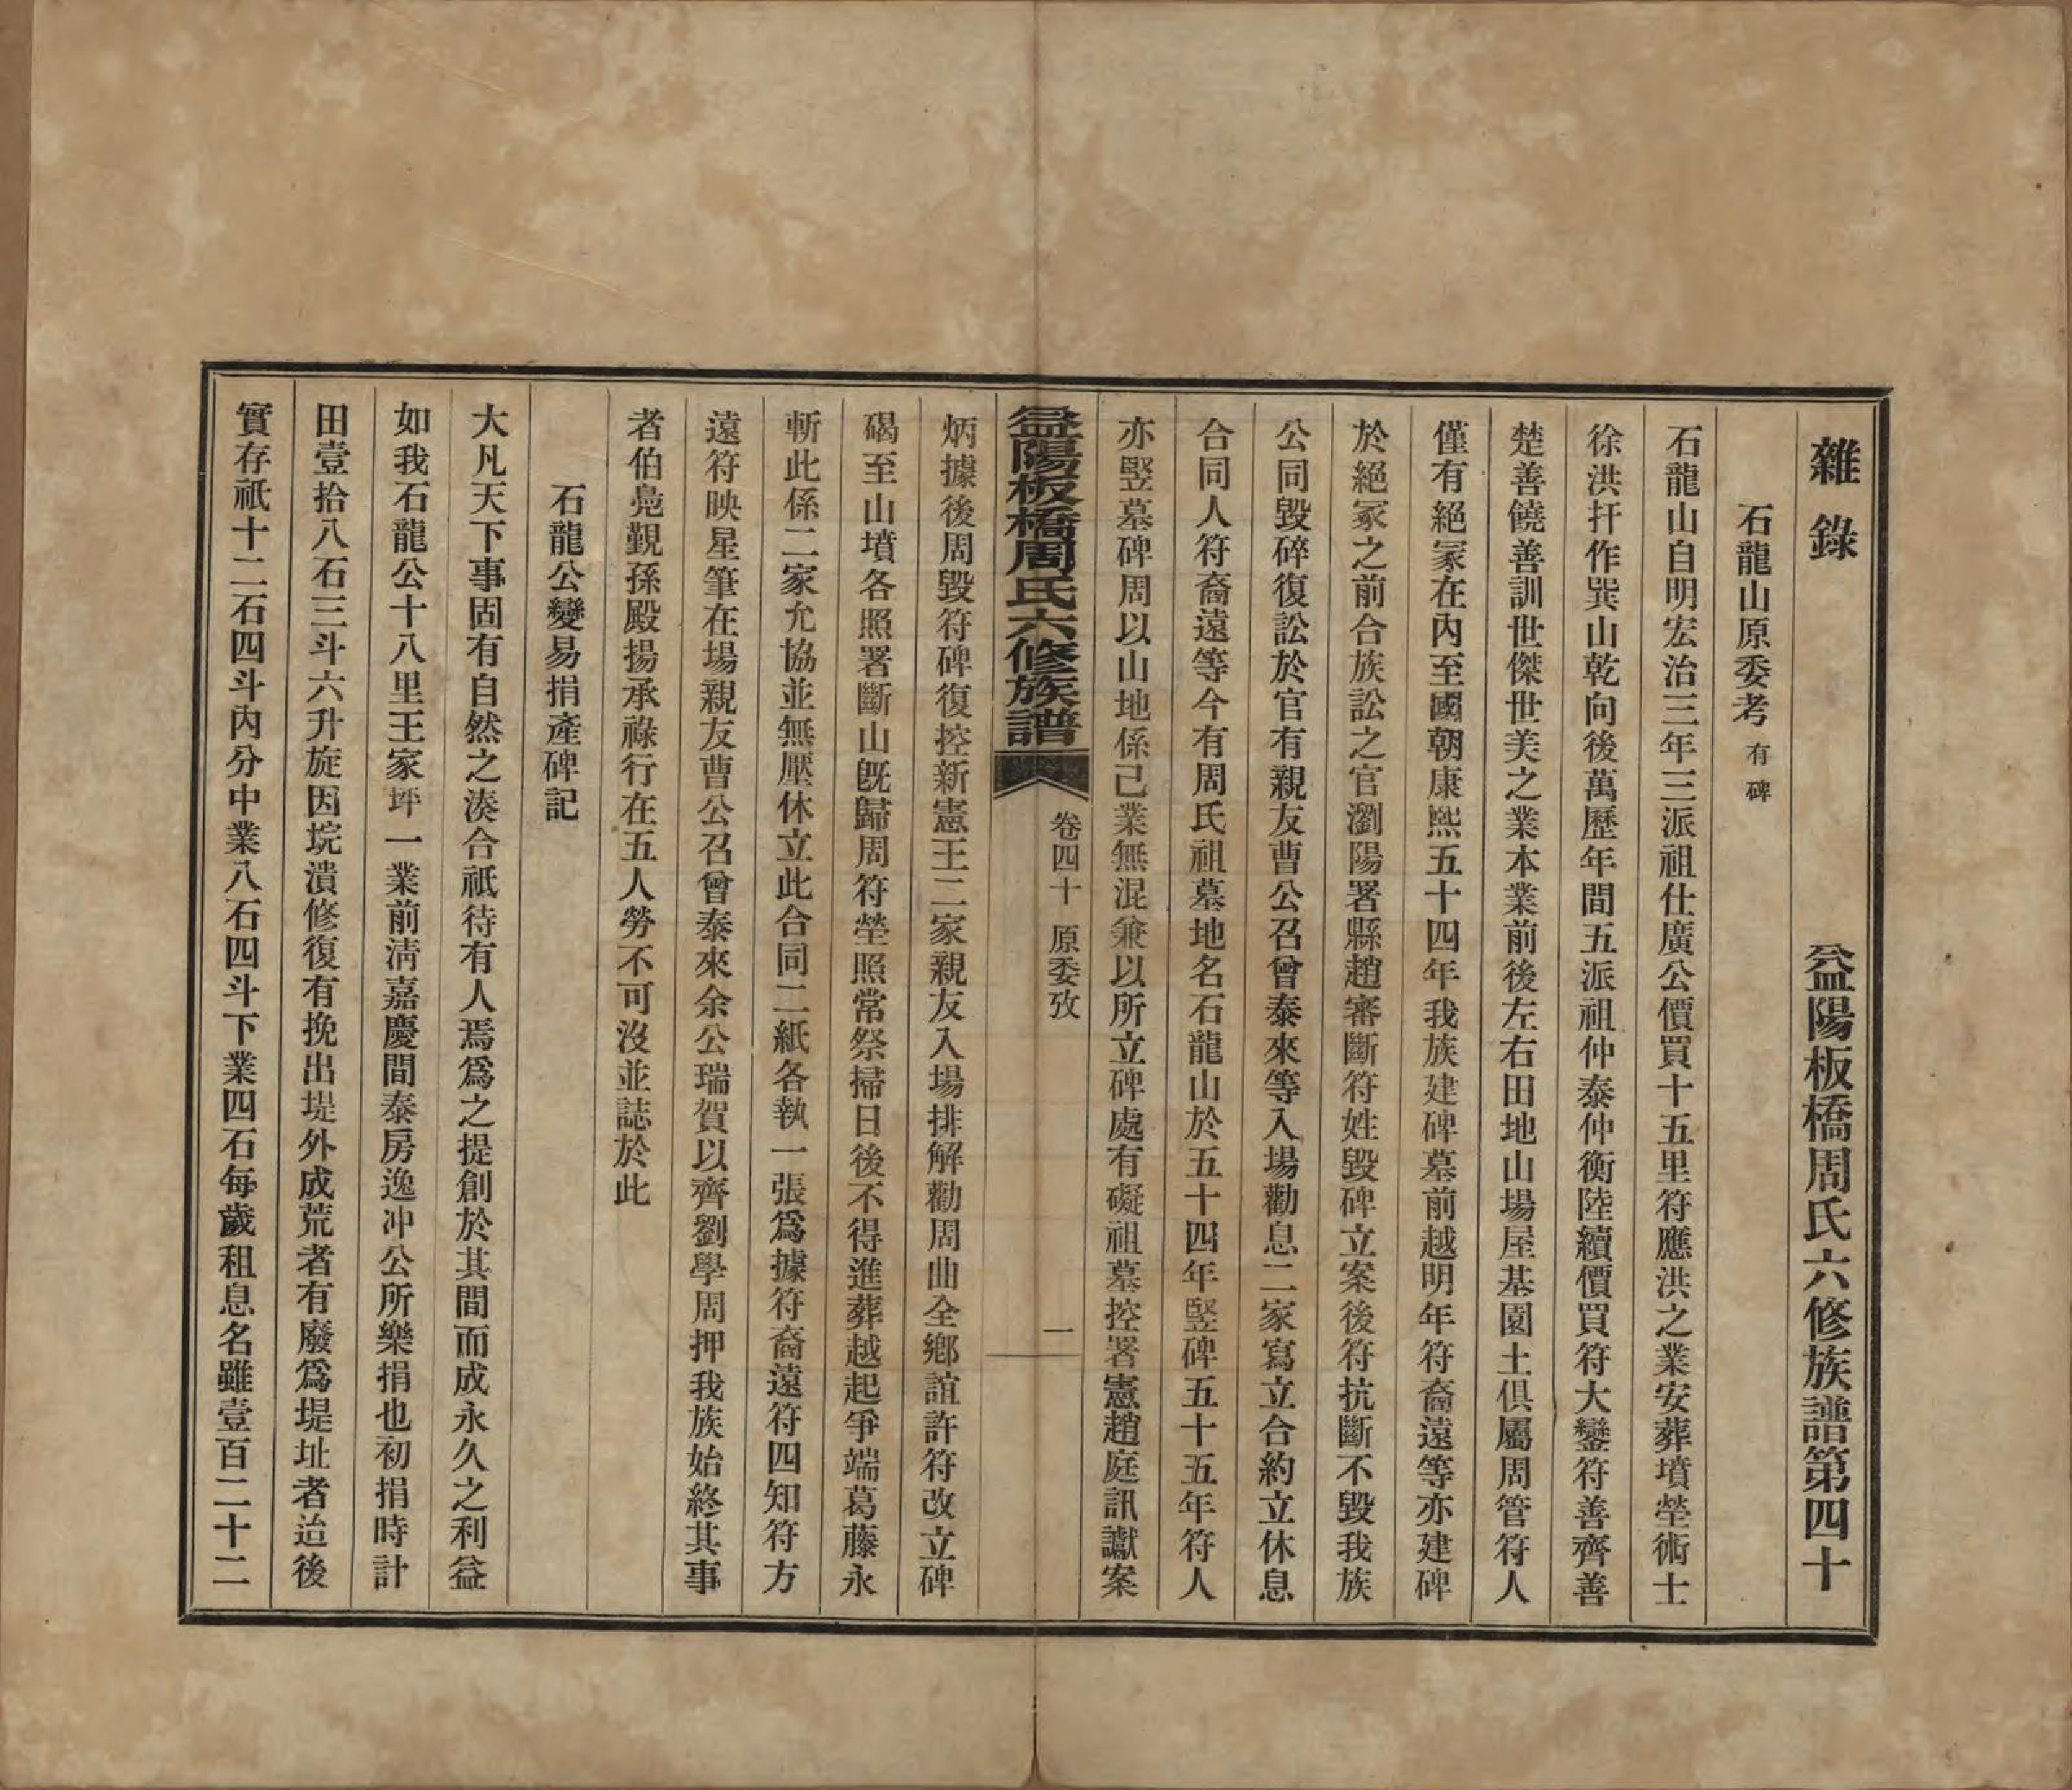 雜錄　益陽板橋周氏六修族譜第四十
石龍山原委考 有碑
石龍山自明宏治三年三派祖仕廣公價買十五里符應洪之業安葬墳塋術士
徐洪扞作巽山乾向後萬歷年間五派祖仲泰仲衡陸續價買符大鑾符善齊善
楚善饒善訓世傑世美之業本業前後左右田地山場屋基園土俱屬周管符人
僅有絕冡在內至國朝康熙五十四年我族建碑墓前越明年符裔遠等亦建碑
於絕冡之前合族訟之官瀏陽署縣趙審斷符姓毀碑立案後符抗斷不毀我族
公同毀碎復訟於官有親友曹公召曾泰來等入場勸息二家寫立合約立休息
合同人符裔遠等今有周氏祖墓地名石龍山於五十四年竪碑五十五年符人
亦竪墓碑周以山地係己業無混兼以所立碑處有礙祖墓控署憲趙庭訊讞案
益陽板橋周氏六修族譜　卷四十　原委攷　一
炳據後周毀符碑復控新憲王二家親友入場排解勸周曲全鄉誼許符改立碑
碣至山墳各照署斷山旣歸周符塋照常祭掃日後不得進葬越起爭端葛藤永
斬此係二家允協並無壓休立此合同二紙各執一張爲據符裔遠符四知符方
遠符映星筆在場親友曹公召曾泰來余公瑞賀以齊劉學周押我族始終其事
者伯鳧覲孫殿揚承祿行在五人勞不可沒並誌於此
石龍公變易捐產碑記
大凡天下事固有自然之湊合祇待有人焉爲之提創於其間而成永久之利益
如我石龍公十八里王家坪一業前淸嘉慶間泰房逸冲公所樂捐也初捐時計
田壹拾八石三斗六升旋因垸潰修復有挽出堤外成荒者有廢爲堤址者迨後
實存祇十二石四斗內分中業八石四斗下業四石每歲租息名雖壹百二十二